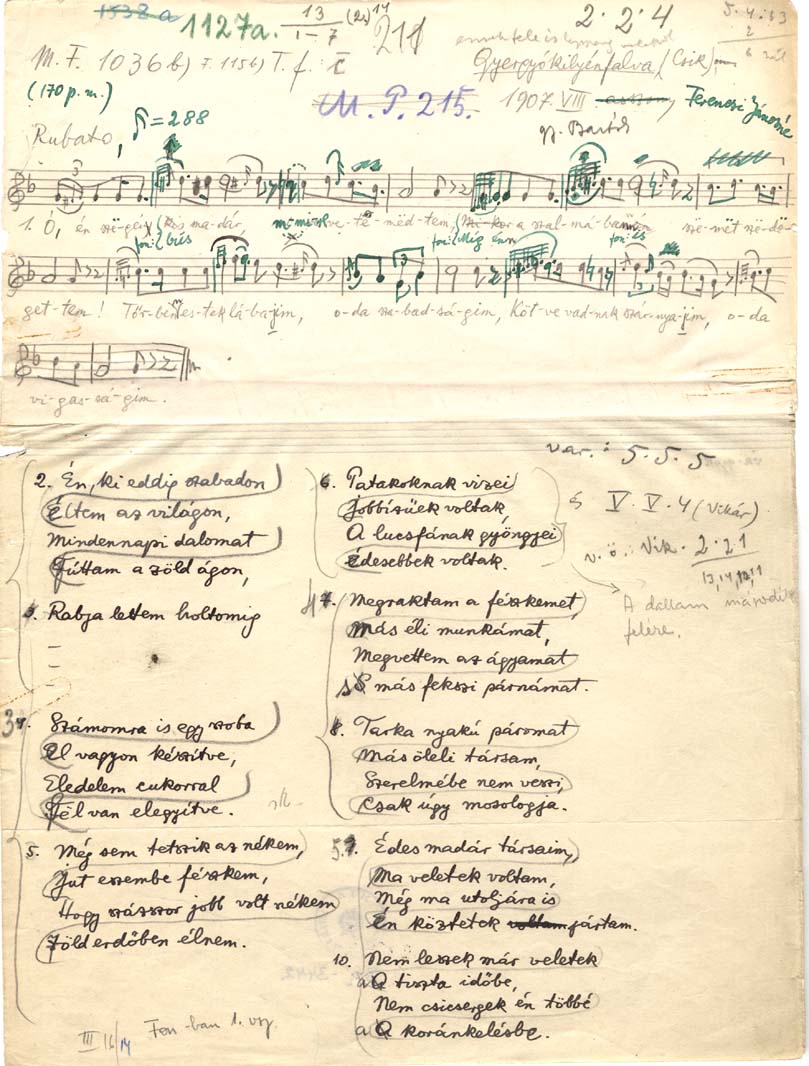 1538 a
1127a.
13
1-7
211
2.2.4
5.4.
M. F. 1036 b) F. 1156) T. f. c
Gyergyókilyénfalva, (Csik),
(170 p. m.)
M. P. 215.
1907. VIII
Ferenczi Jánosné
Gy. Bartók
Rubato, = 288
3
1. Ó, én szëgeiny kos ma-dár, mi-nek ve-të-mëd-tem, Mi-kor a szal-má-ban szë-mët szë-dë-
get-tem! Tőr-be es-tek lá-ba-jim, o-da sza-bad-sá-gim, Köt-ve vad-nak szár-nya-jim, o-da
vi-gas-sá-gim.
var.: 5. 5. 5
és V. V. 4 (Vikár)
v. ö. Vik. 2.2.1
A dallam második
felére.
2. Én, ki eddig szabadon
Éltem az világon,
Mindennapi dalomat
Fúttam a zöld ágon,
3. Rabja lettem holtomig
–
–
–
3 4. Számomra is egy szoba
El vagyon készítve,
Eledelem cukorral
Fel van elegyítve.
5. Még sem tetszik az nékem,
Jut eszembe fészkem,
Hogy százszor jobb volt nékem
Zöld erdőben élnem.
6. Patakoknak vizei
Jobbízűek voltak,
A lucsfának gyöngyei
Édesebbek voltak.
4 7. Megraktam a fészkemet,
Más éli munkámat,
Megvettem az ágyamat
S más fekszi párnámat.
8. Tarka nyakú páromat
Más öleli társam,
Szerelmébe nem veszi,
Csak úgy mosologja.
5. 9. Édes madár társaim,
Ma veletek voltam,
Még ma utoljára is
Én köztetek voltam jártam.
10. Nem leszek már veletek
A tiszta időbe,
Nem csicsergek én többé
A koránkelésbe.
III 16/14
Fon-ban 1. vsz.